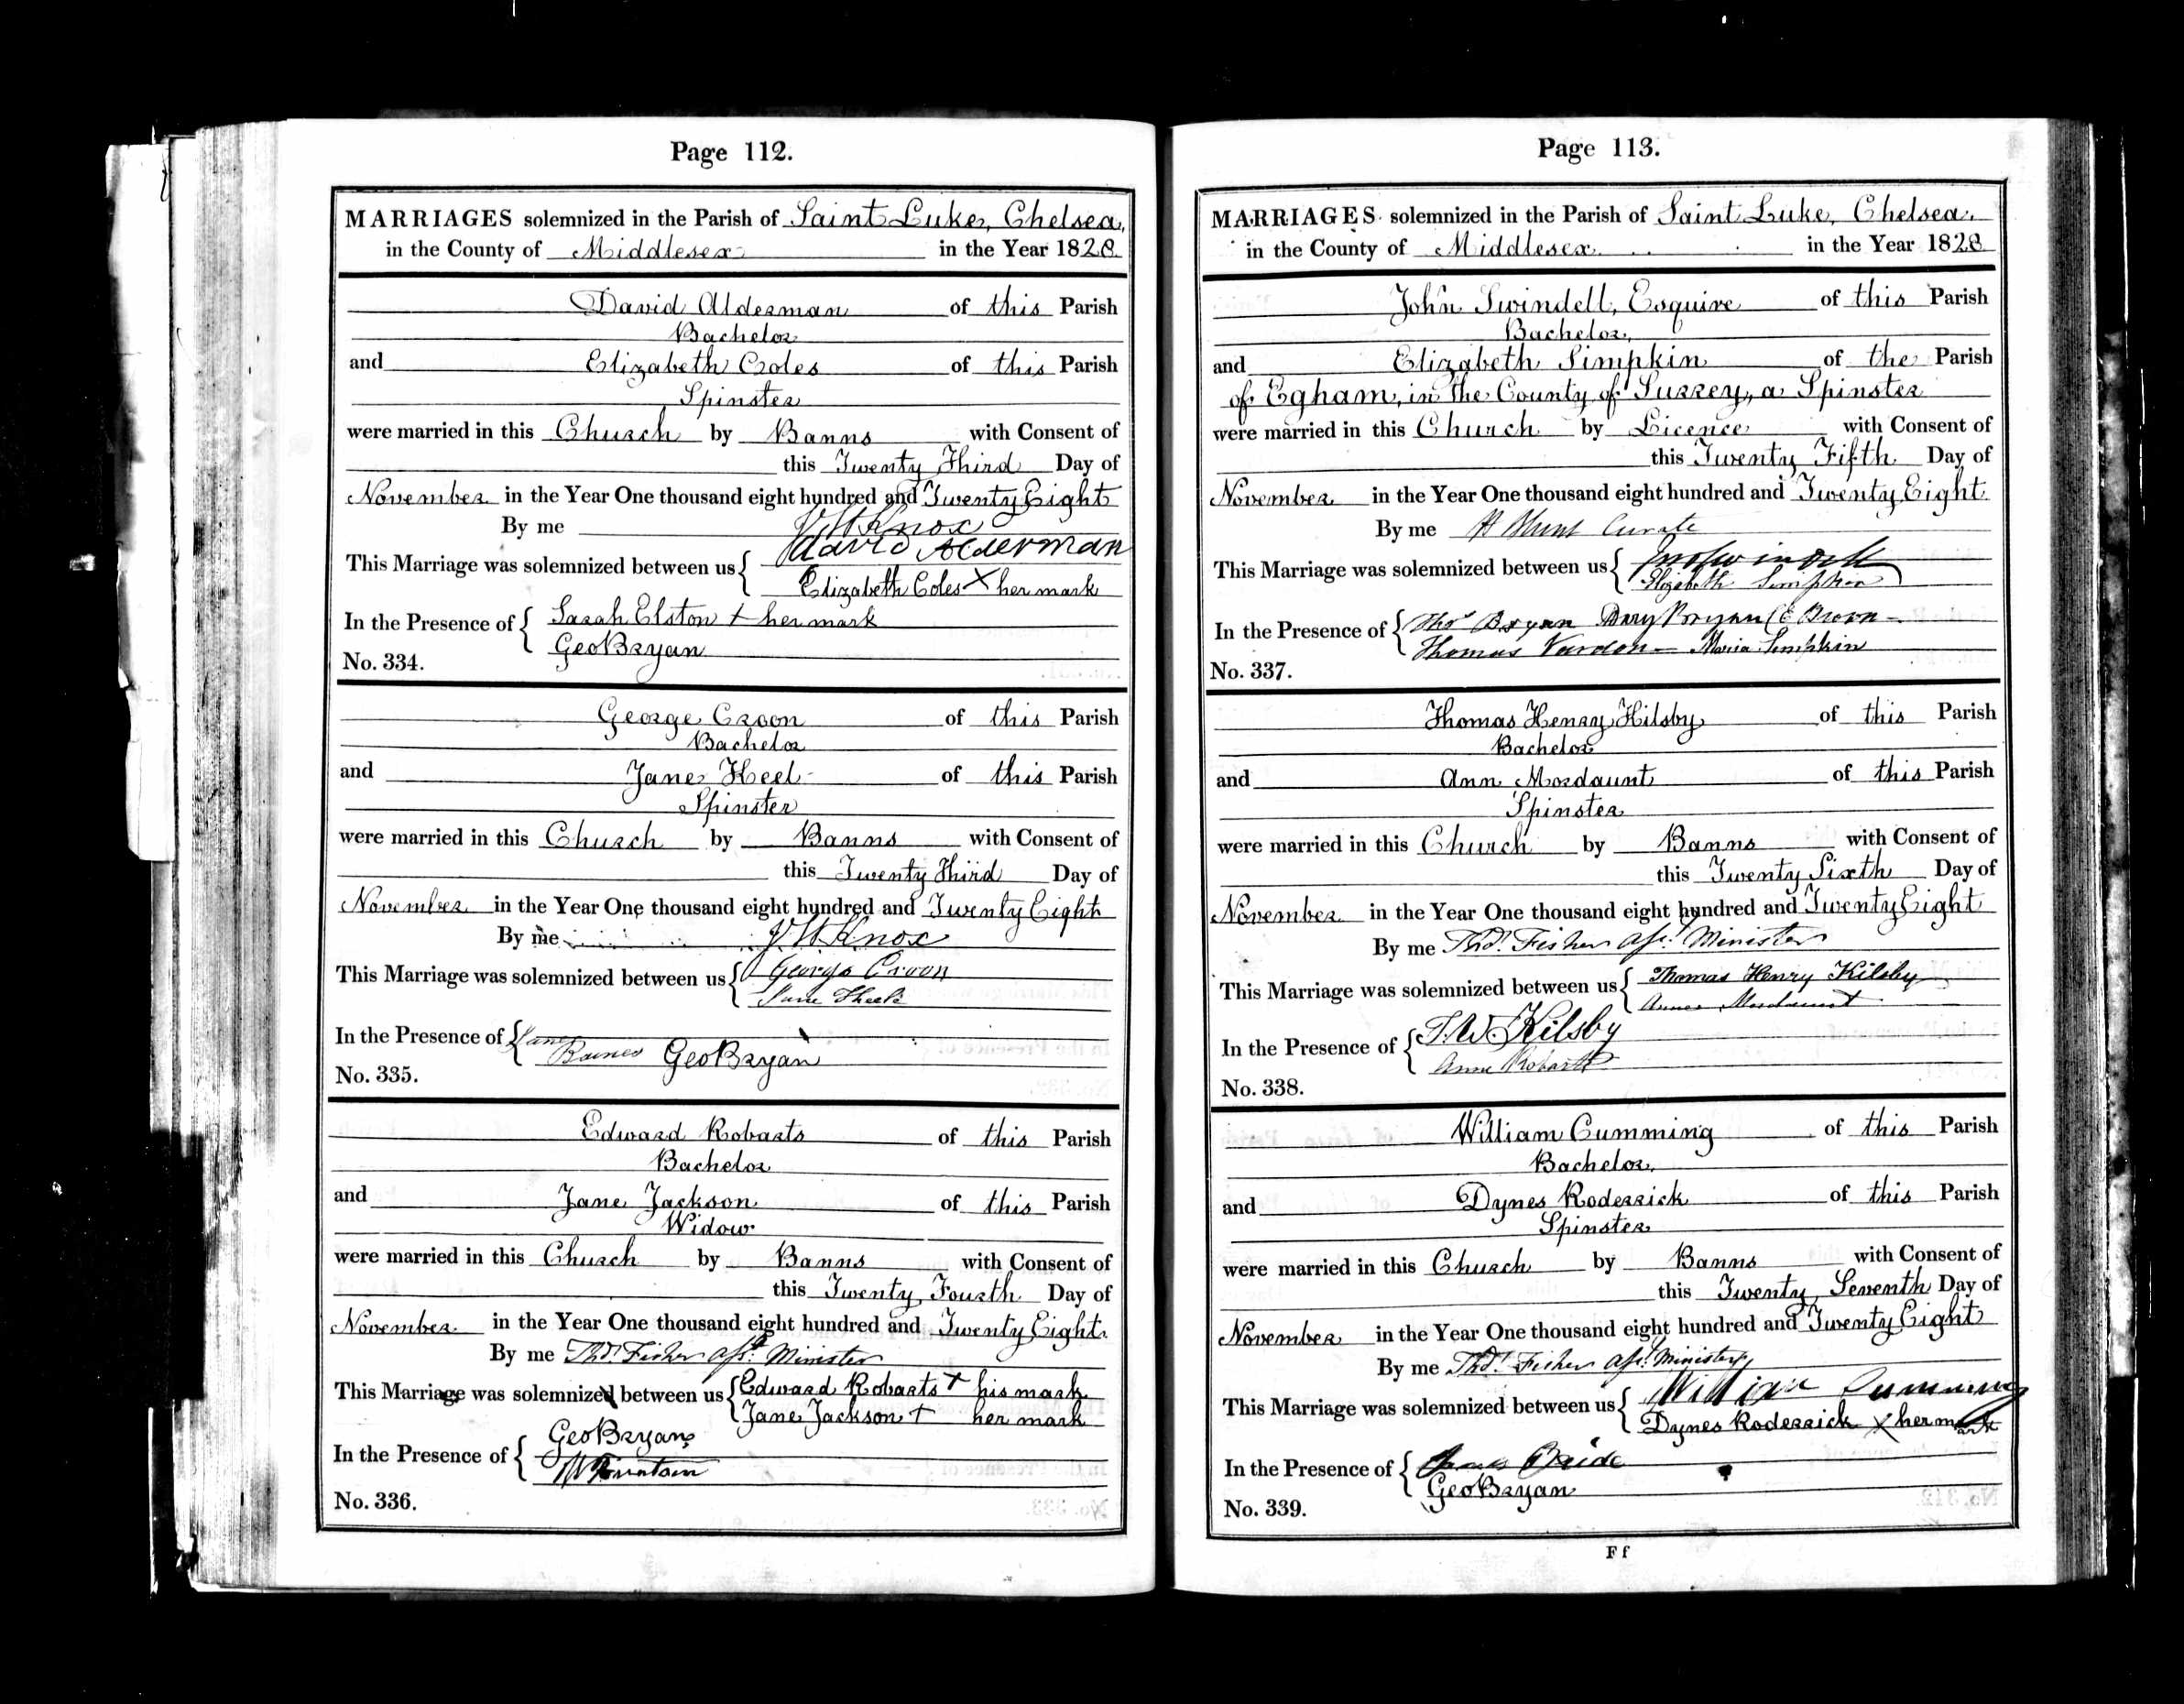 Page 112.
MARRIAGES solemnized in the Parish of Saint Luke, Chelsea,
in the County of Middlesex in the Year 1828.
David Alderman of this Parish
Bachelor
and Elizabeth Coles of this Parish
Spinster
were married in this Church by Banns with Consent of
this Twenty Third Day of
November in the Year One thousand eight hundred and Twenty Eight
By me Knox
This Marriage was solemnized between us { David Alderman
Elizabeth Coles X her mark
In the Presence of { Sarah Elston + her mark
Geo Bryan
No. 334.
George Croon of this Parish
Bachelor
and Jane Heel of this Parish
Spinster
were married in this Church by Banns with Consent of
this Twenty Third Day of
November in the Year One thousand eight hundred and Twenty Eight
By me Knox
This Marriage was solemnized between us { George Croon
Jane
In the Presence of { Jane
Barnes Geo Bryan
No. 335.
Edward Robarts of this Parish
Bachelor
and Jane Jackson of this Parish
Widow
were married in this Church by Banns with Consent of
this Twenty Fourth Day of
November in the Year One thousand eight hundred and Twenty Eight.
By me Thos. Fisher Asst. Minister
This Marriage was solemnized between us { Edward Robarts + his mark
Jane Jackson + her mark
In the Presence of { Geo Bryan
No. 336.
Page 113.
MARRIAGES solemnized in the Parish of Saint Luke, Chelsea.
in the County of Middlesex in the Year 1828
John Swindell, Esquire of this Parish
Bachelor,
and Elizabeth Simpkin of the Parish
of Egham, in the County of Surrey, a Spinster
were married in this Church by Licence with Consent of
this Twenty Fifth Day of
November in the Year One thousand eight hundred and Twenty Eight
By me H Blunt Curate
This Marriage was solemnized between us { Swindell
Elizabeth Simpkin
In the Presence of { Thos Bryan Mary Bryan C E Brown
Thomas Vardon Maria Simpkin
No. 337.
Thomas Henry Hilsby of this Parish
Bachelor
and Ann Mordaunt of this Parish
Spinster
were married in this Church by Banns with Consent of
this Twenty Sixth Day of
November in the Year One thousand eight hundred and Twenty Eight
By me Thos. Fisher Asst. Minister
This Marriage was solemnized between us { Thomas Henry Kilsby
Mordaunt
In the Presence of { T. W. Kilsby
Anne Robarts
No. 338.
William Cumming of this Parish
Bachelor
and Dynes Roderrick of this Parish
Spinster
were married in this Church by Banns with Consent of
this Twenty Seventh Day of
November in the Year One thousand eight hundred and Twenty Eight
By me Thos. Fisher Asst. Minister
This Marriage was solemnized between us { William Cumming
Dynes Roderrick X her mark
In the Presence of {
Geo Bryan
No. 339.
F f